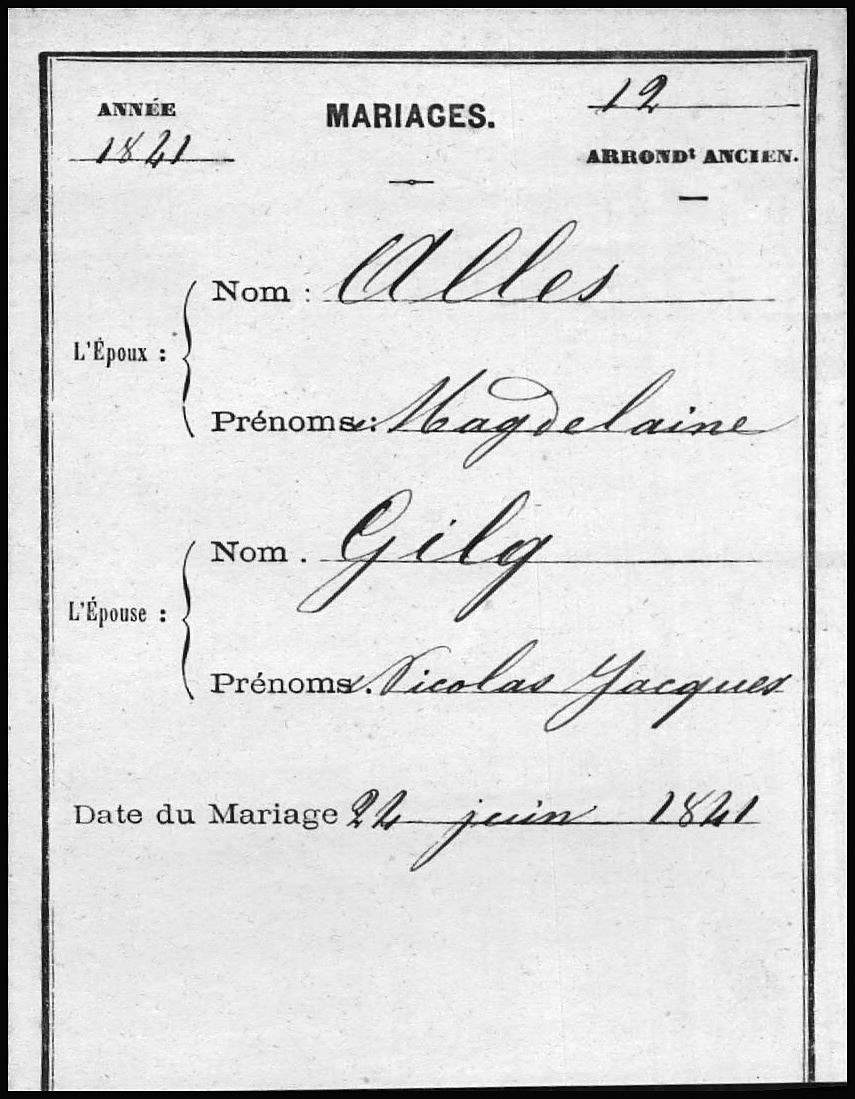 ANNÉE
1821
MARIAGES.
12
ARRONDt ANCIEN.
L'Époux :
Nom : Alles
Prénoms : Magdelaine
L'Épouse :
Nom . Gilg
Prénoms . Nicolas Jacques
Date du Mariage 22 juin 1821